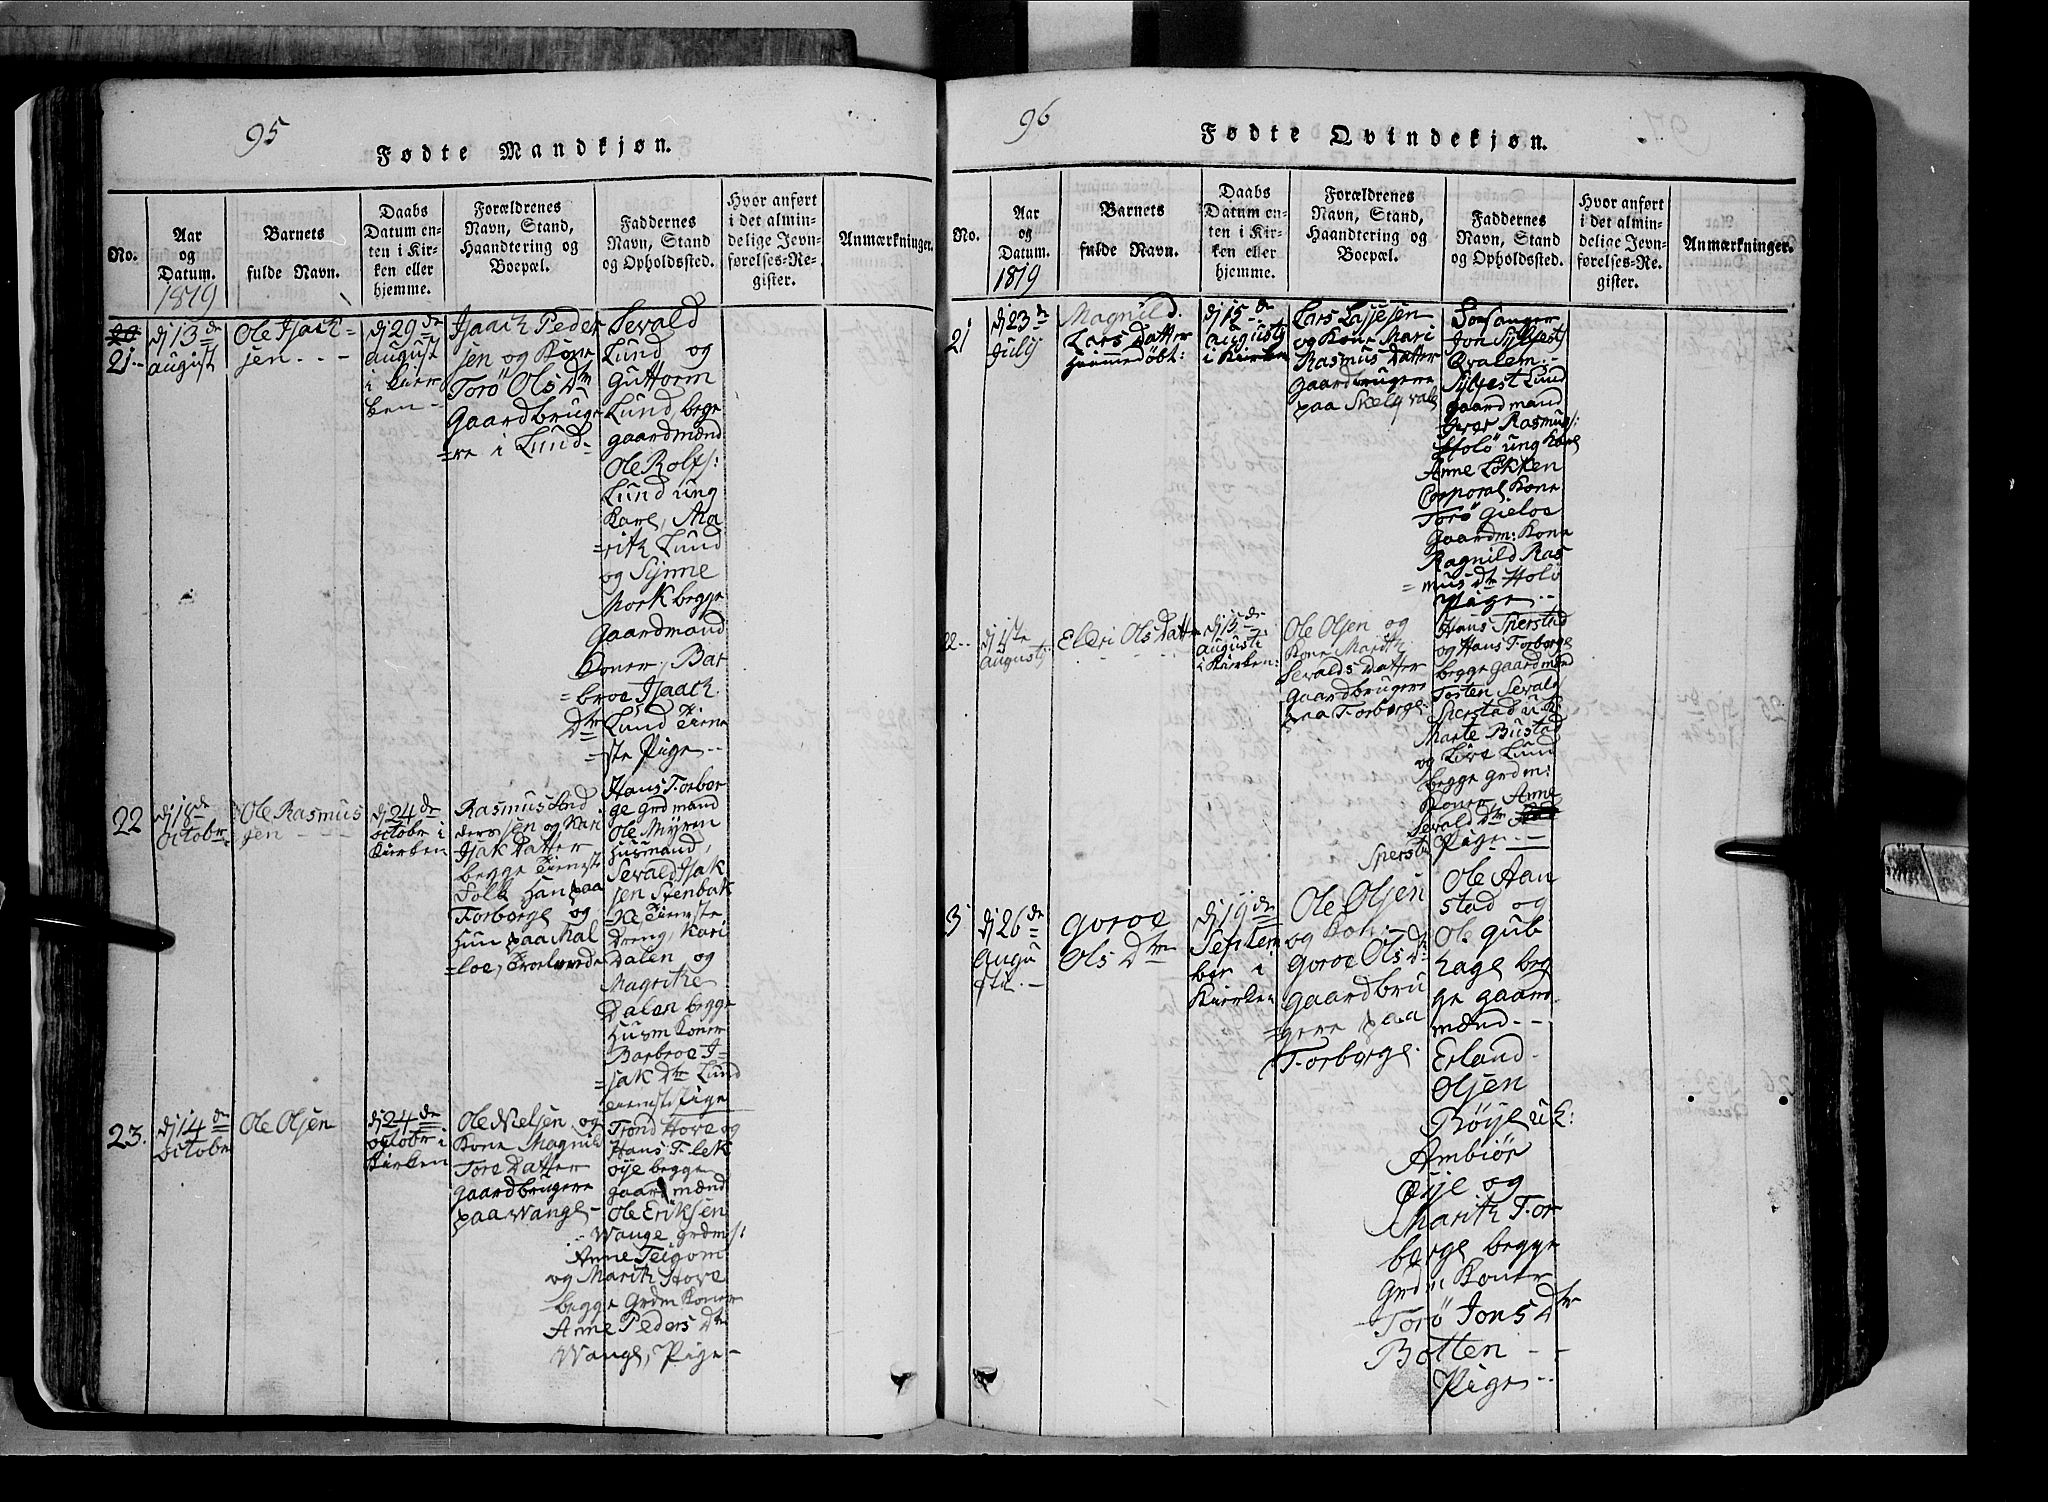 95
Fødte Mandkjøn.
No.
Aar
og
Datum.
1819
Barnets
fulde Navn.
Daabs
Datum en-
ten i Kir-
ken eller
hjemme.
Forældrenes
Navn, Stand,
Haandtering og
Boepæl.
Faddernes
Navn, Stand
og Opholdssted.
Hvor anført
i det almin-
delige Jevn-
førelses-Re-
gister.
Anmærkninger.
21
dj 13de
august
Ole Isach-
sen
dj 29de
august
i Kier
ken
Isaach Peder
sen og Kone
Torø Ols Dtr
Gaardbruge
=re i Lund
Sevald
Lund og
Guttorm
Lund bege
gaardmænd
Ole Rolfs:
Lund ung
Karl, Ma
=rith Lund
og Synne
Mork begge
Gaardmand
Koner, Bar
=broe Isaach
Dtr Lund Tiene
=ste Pige
22
dj 18de
octobr
Ole Rasmus
sen
dj 24de
octobr i
Kierken
Rasmus And
derssen og Kari
Isak Datter
begge Tieneste
Folk Han paa
Forborge og
Hun paa Mal
=loe,
Hans Forbor
ge grdmand
Ole Myren
Husmand,
Sevald Isak
sen Stenbak
=ke Tieneste
Dreng, Kari
Dalen og
Magrithe
Dalen begge
Husm Koner
Barbroe I=
=sak Dtr Lund
tieneste Pige
23.
dj 14de
octobr
Ole Olsen
dj 24de
octobr i
Kierken
Ole Nielsen og
Kone Magnild
Tore Datter
gaardbrugere
paa Wange
Trond Hove og
Hans Flek
øye begge
gaardmænd
Ole Eriksen
Wange grdms:
Anne Teigom
og Marith Hove
begge Grdm Koner
Anne Peders Dtr
Wange, Pige
96
Fødte Qvindekjøn.
No.
Aar
og
Datum.
1819
Barnets
fulde Navn.
Daabs
Datum en-
ten i Kir-
ken eller
hjemme.
Forældrenes
Navn, Stand,
Haandtering og
Boepæl.
Faddernes
Navn, Stand
og Opholdssted.
Hvor anført
i det almin-
delige Jevn-
førelses-Re-
gister.
Anmærkninger.
21
dj 23de
July
Magnild
Lars Datter
Hiemmedøbt:
dj 15de
augusty
i Kirken
Lars Lassesen
og Kone Mari
Rasmus Datter
gaardbrugere
paa
Forsanger
Jon Sylfesty
Qvalem
Sylfest Lund
gaardmand
Iver Rasmus:
Holø ung Karl
Anne Løkken
Corporal Kone
Torø Gieloe
Gaardm: Kone
Ragnild Ras
=mus Dtr Holø
Pige
22
dj 1ste
Augusty
Eldri Ols Datter
dj 15de
augusti
i Kirken:
Ole Olsen og
Kone Marith
Sevalds Datter
Gaardbrugere
paa Forborge
Hans Sperstad
og Hans Forborge
begge gaardmænd
Tosten Sevals
Sperstad u: k:
Marte Bustad
og Live Lund
begge grdm:
Koner, Anne
Sevald Dtr
Spersta Pige
3
dj 26de
Augu
sti
Goroe
Ols Dtr
dj 19de
Septem
ber i
Kierken
Ole Olsen
og Kone
Goroe Ols Dr
gaardbru
=gere paa
Forborge
Ole Aan
stad og
Ole Gub
hage beg
ge gaard
mænd
Erland
Olsen
Røyse u k:
Ambiør
Øye og
Marith For
borge begge
Grdm Koner
Torø Jons Dtr
Botten
Pige